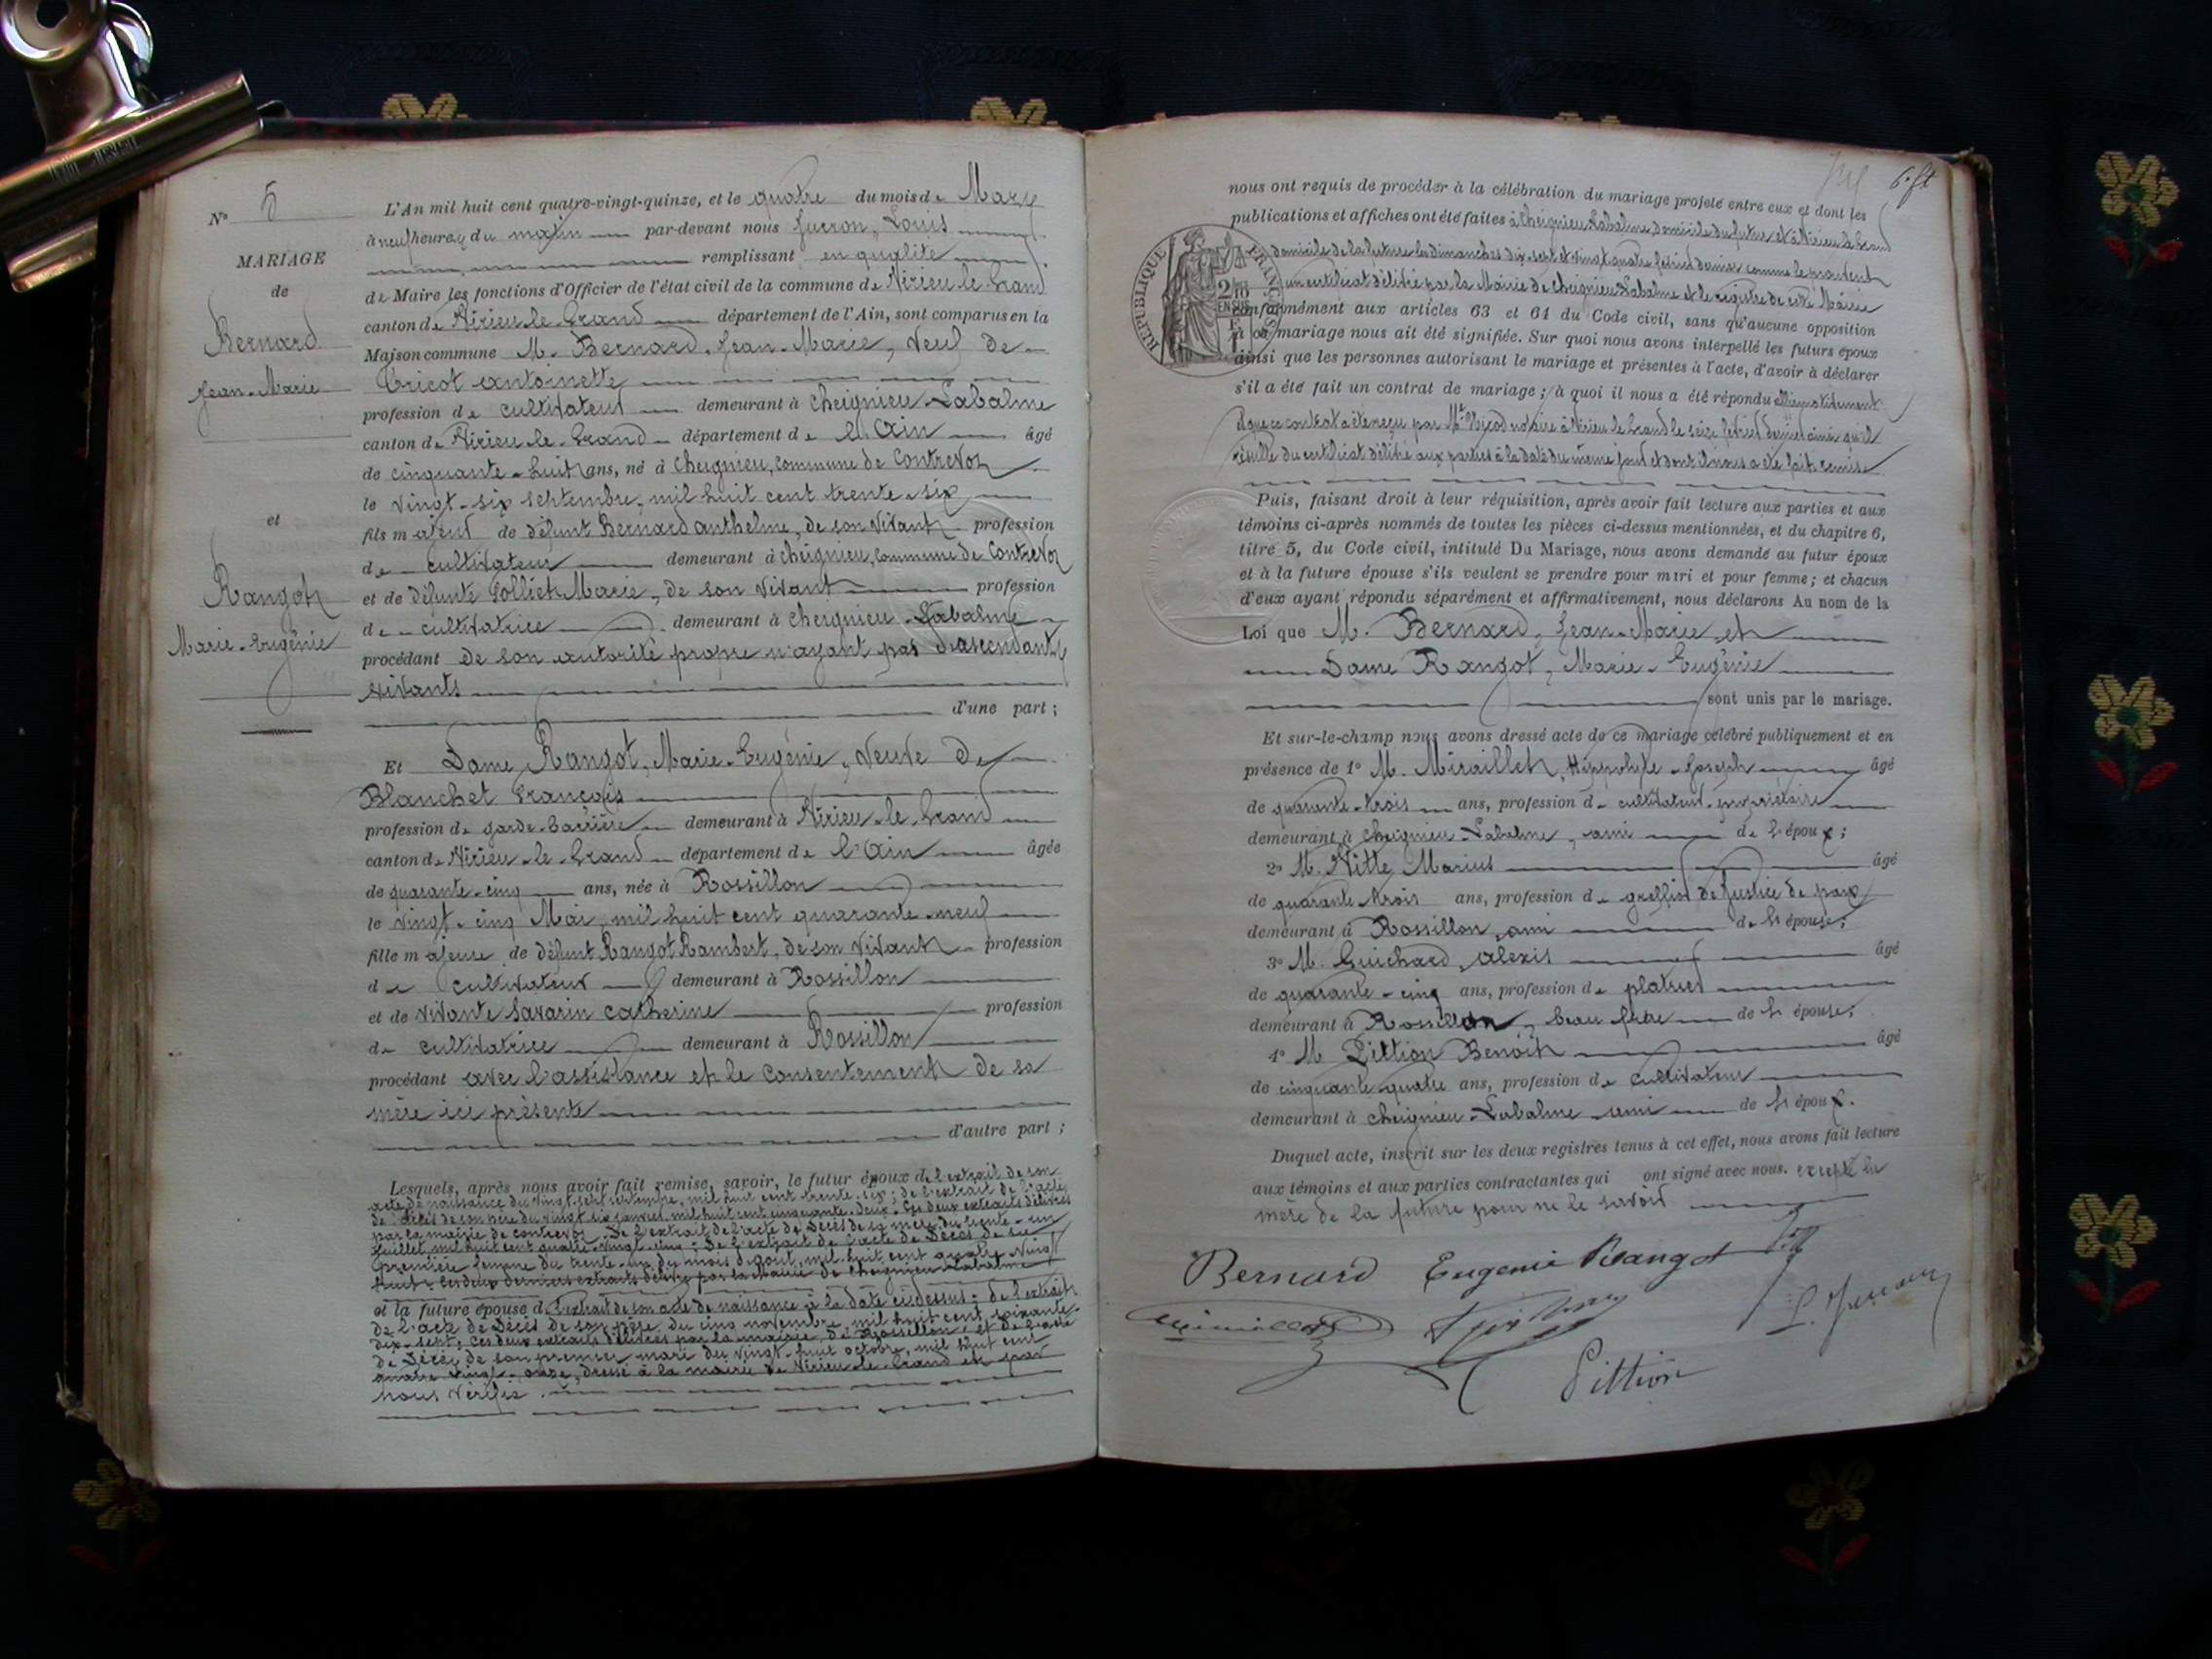 N° 5
MARIAGE
de
Bernard
Jean-Marie
et
Rangot
Marie-Eugénie
L'An mil huit cent quatre-vingt-quinze, et le quatre du mois de Mars
à neuf heures du matin par-devant nous Louis
remplissant en qualité
de Maire les fonctions d'Officier de l'état civil de la commune de Virieu-le-Grand
canton de Virieu-le-Grand département de l'Ain, sont comparus en la
Maison commune M. Bernard, Jean-Marie, veuf de
Tricot antoinette
profession de cultivateur demeurant à Cheignieu-Labalme
canton de Virieu-le-Grand département de l'Ain âgé
de cinquante-huit ans, né à Cheignieu, commune de Contrevoz
le vingt-six septembre, mil huit cent trente-six
fils majeur de défunt Bernard anthelme, de son vivant profession
de cultivateur demeurant à Cheignieu, commune de Contrevoz
et de défunte Marie, de son vivant profession
de cultivatrice demeurant à Cheignieu-Labalme
procédant de son autorité propre n'ayant pas d'ascendants
vivants
d'une part ;
Et Dame Rangot, Marie-Eugénie, veuve de
Blanchet François
profession de garde-barrière demeurant à Virieu-le-Grand
canton de Virieu-le-Grand département de l'Ain âgée
de quarante-cinq ans, née à Rossillon
le vingt-cinq Mai, mil huit cent quarante-neuf
fille majeure de défunt Rangot Rambert, de son vivant profession
de cultivateur demeurant à Rossillon
et de vivante Savarin catherine profession
de cultivatrice demeurant à Rossillon
procédant avec l'assistance et le consentement de sa
mère ici présente
d'autre part ;
Lesquels, après nous avoir fait remise, savoir, le futur époux de l'extrait de son
acte de naissance du vingt-sept septembre, mil huit cent trente-six ; de l'extrait de l'acte
de décès de son père du vingt-six janvier mil huit cent cinquante-deux. Ces deux extraits délivrés
par la mairie de contrevoz. De l'extrait de l'acte de Décès de sa mère du trente-un
Juillet mil huit cent quatre-vingt-cinq ; De l'extrait de l'acte de Décès de sa
première femme du trente-un du mois d'août, mil huit cent quatre-vingt
huit. Ces deux derniers extraits délivrés par la Mairie de Cheignieu-Labalme
et la future épouse de l'extrait de son acte de naissance à la date ci-dessus : de l'extrait
de l'acte de Décès de son père, du cinq novembre, mil huit cent soixante
dix-sept ; ces deux extraits délivrés par la mairie de Rossillon, et de l'acte
de Décès de son premier mari du vingt-huit octobre, mil huit cent
quatre vingt-onze, dressé à la mairie de Virieu-le-Grand et par
nous vérifié.
nous ont requis de procéder à la célébration du mariage projeté entre eux et dont les
publications et affiches ont été faites à Cheignieu-Labalme, domicile du futur et à Virieu-le-Grand
domicile de la future les dimanches dix-sept et vingt-quatre février dernier comme le prouvent
un certificat délivré par la Mairie de Cheignieu-Labalme et le registre de cette Mairie
conformément aux articles 63 et 64 du Code civil, sans qu'aucune opposition
à ce mariage nous ait été signifiée. Sur quoi nous avons interpellé les futurs époux
ainsi que les personnes autorisant le mariage et présentes à l'acte, d'avoir à déclarer
s'il a été fait un contrat de mariage ; à quoi il nous a été répondu affirmativement
et que ce contrat a été reçu par Me notaire à Virieu-le-Grand le seize février dernier ainsi qu'il
résulte du certificat délivré aux parties à la date du même jour et dont il nous a été fait remise
RÉPUBLIQUE FRANÇAISE
Puis, faisant droit à leur réquisition, après avoir fait lecture aux parties et aux
témoins ci-après nommés de toutes les pièces ci-dessus mentionnées, et du chapitre 6,
titre 5, du Code civil, intitulé Du Mariage, nous avons demandé au futur époux
et à la future épouse s'ils veulent se prendre pour mari et pour femme ; et chacun
d'eux ayant répondu séparément et affirmativement, nous déclarons Au nom de la
Loi que M. Bernard, Jean-Marie, et
Dame Rangot, Marie-Eugénie
sont unis par le mariage.
Et sur-le-champ nous avons dressé acte de ce mariage célébré publiquement et en
présence de 1° M. Miraillet, Hippolyte-Joseph âgé
de quarante-trois ans, profession de cultivateur-propriétaire
demeurant à Cheignieu-Labalme, ami de l'époux ;
2° M. Vitte Marius âgé
de quarante-trois ans, profession de greffier de Justice de paix
demeurant à Rossillon, ami de l'épouse ;
3° M. Guichard, alexis âgé
de quarante-cinq ans, profession de platrier
demeurant à Rossillon, beau frère de l'épouse ;
4° M Pittion Benoit âgé
de cinquante-quatre ans, profession de cultivateur
demeurant à Cheignieu-Labalme ami de l'époux.
Duquel acte, inscrit sur les deux registres tenus à cet effet, nous avons fait lecture
aux témoins et aux parties contractantes qui ont signé avec nous. excepté la
mère de la future pour ne le savoir
Bernard Eugenie Rangot
Pittion